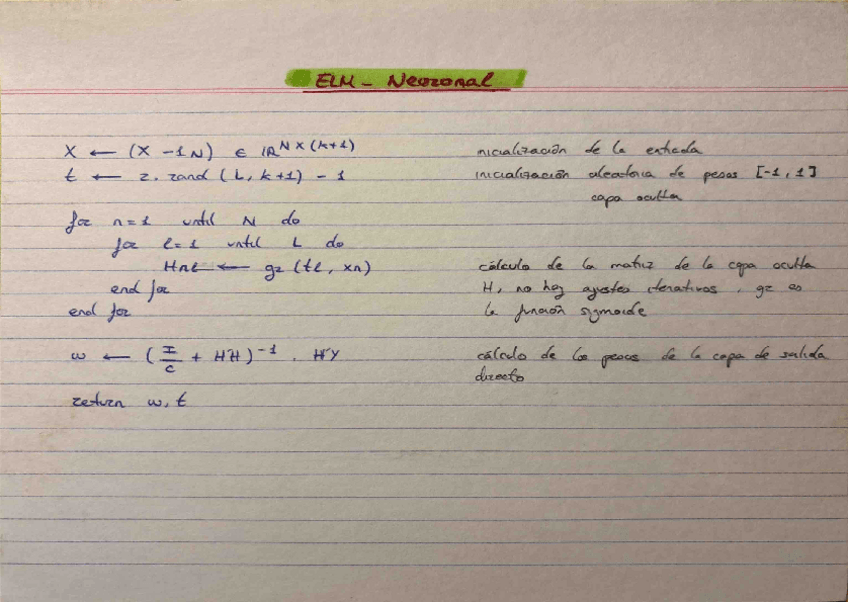 ELM - Neuronal
X ← (X -1N) ∈ IR^N x (k+1)    inicialización de la entrada
t ← 2. rand (L, k+1) - 1    inicialización aleatoria de pesos [-1, 1]
capa oculta
for n=1 until N do
for l=1 until L do
Hnl ← gz (tl, xn)    cálculo de la matriz de la capa oculta
end for    H, no hay ajustes iterativos, gz es
end for    la función sigmoide
w ← (I/C + H'H)^-1 . H'Y    cálculo de los pesos de la capa de salida
directo
return w, t